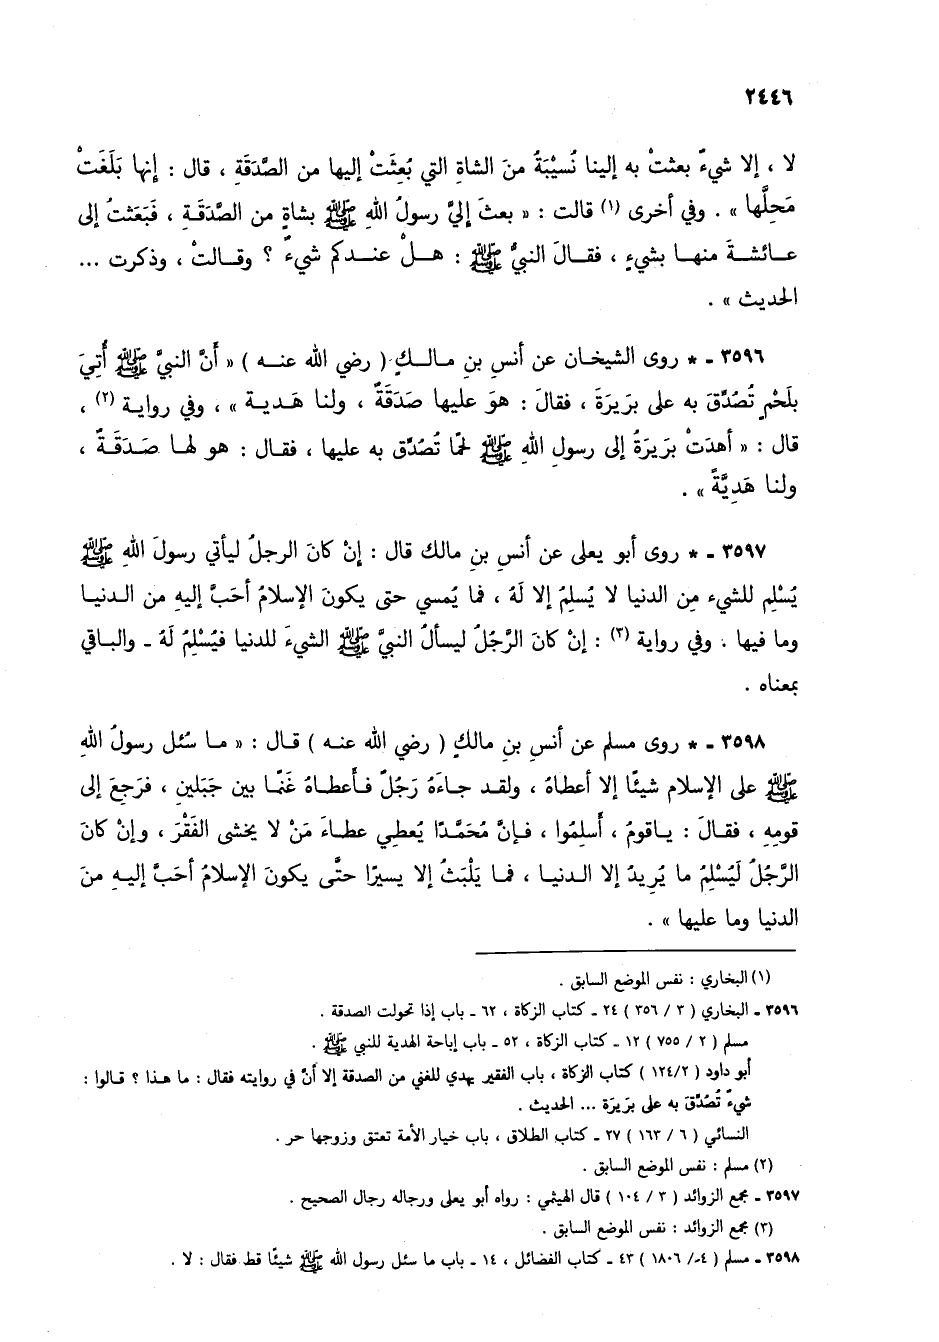 ٢٤٤٦
لا ، إلا شيءٌ بعثتْ به إلينا نُسَيْبَةُ منَ الشاةِ التي بُعِثَتْ إليها من الصَّدَقَةِ ، قال : إنها بَلَغَتْ
مَحِلَّها » . وفي أخرى (١) قالت : « بعثَ إليَّ رسولُ اللهِ ﷺ بشاةٍ من الصَّدَقَةِ ، فَبَعَثتُ إلى
عائشةَ منها بشيءٍ ، فقالَ النبيُّ ﷺ : هلْ عندكم شيءٌ ؟ وقالتْ ، وذكرت ...
الحديث » .
٣٥٩٦ ـ * روى الشيخان عن أنسِ بنِ مالكٍ ( رضي الله عنه ) « أَنَّ النبيَّ ﷺ أُتِيَ
بلَحْمٍ تُصُدِّقَ به على بَرِيَرةَ ، فقالَ : هوَ عليها صَدَقَةٌ ، ولنا هَدية » ، وفي رواية (٢) ،
قال : « أهدَتْ بَرِيَرةُ إلى رسولِ اللهِ ﷺ لحمًا تُصُدِّق به عليها ، فقال : هو لها صَدَقَةٌ ،
ولنا هَدِيَّةٌ » .
٣٥٩٧ ـ * روى أبو يعلى عن أنسِ بنِ مالك قال : إنْ كانَ الرجلُ ليأتي رسولَ اللهِ ﷺ
يُسْلِم للشيء مِن الدنيا لا يُسلِمُ إلا لَهُ ، فما يُمسي حتى يكونَ الإسلامُ أحَبَّ إليهِ من الدنيا
وما فيها . وفي رواية (٣) : إنْ كانَ الرَّجُلُ ليسألُ النبيَّ ﷺ الشيءَ للدنيا فيُسْلِمُ لَهُ ـ والباقي
بمعناه .
٣٥٩٨ ـ * روى مسلم عن أنسِ بنِ مالكٍ ( رضي الله عنه ) قال : « ما سُئل رسولُ اللهِ
ﷺ على الإسلام شيئًا إلا أعطاهُ ، ولقد جاءَهُ رَجُلٌ فأعطاهُ غَنَمًا بين جَبَلينِ ، فرَجِعَ إلى
قومِهِ ، فقالَ : ياقومُ ، أَسلِمُوا ، فإنَّ مُحَمَّدًا يُعطِي عطاءَ مَنْ لا يخشى الفَقْرَ ، وإنْ كانَ
الرَّجُلُ لَيُسْلِمُ ما يُرِيدُ إلا الدنيا ، فما يَلْبَثُ إلا يسيرًا حتَّى يكونَ الإسلامُ أحَبَّ إليهِ منَ
الدنيا وما عليها » .
(١) البخاري : نفس الموضع السابق .
٣٥٩٦ ـ البخاري ( ٣ / ٣٥٦ ) ٢٤ ـ كتاب الزكاة ، ٦٢ ـ باب إذا تحولت الصدقة .
مسلم ( ٢ / ٧٥٥ ) ١٢ ـ كتاب الزكاة ، ٥٢ ـ باب إباحة الهدية للنبي ﷺ .
أبو داود ( ١٢٤/٢ ) كتاب الزكاة ، باب الفقير يهدي للغني من الصدقة إلا أنَّ في روايته فقال : ما هذا ؟ قالوا :
شيءٌ تُصُدِّقَ به على بَرِيَرة ... الحديث .
النسائي ( ٦ / ١٦٣ ) ٢٧ ـ كتاب الطلاق ، باب خيار الأمة تعتق وزوجها حر .
(٢) مسلم : نفس الموضع السابق .
٣٥٩٧ ـ مجمع الزوائد ( ٣ / ١٠٤ ) قال الهيثمي : رواه أبو يعلى ورجاله رجال الصحيح .
(٣) مجمع الزوائد : نفس الموضع السابق .
٣٥٩٨ ـ مسلم ( ٤ / ١٨٠٦ ) ٤٣ ـ كتاب الفضائل ، ١٤ ـ باب ما سئل رسول الله ﷺ شيئًا قط فقال : لا .